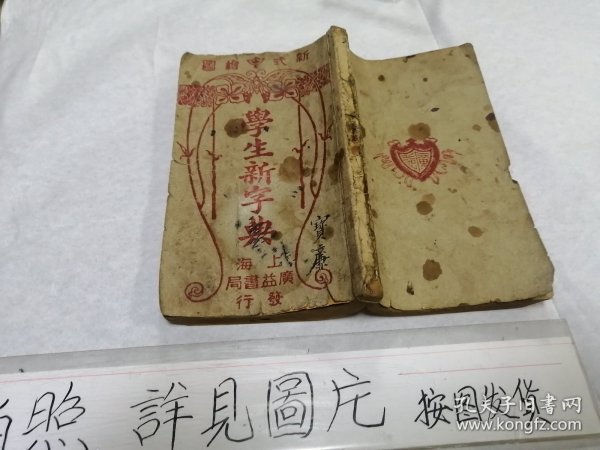 新式 繪圖
學生新字典
上海
廣益書局
發行
寶廉
照 詳見圖片 按图发货
孔夫子旧书网
book.kongfz.com